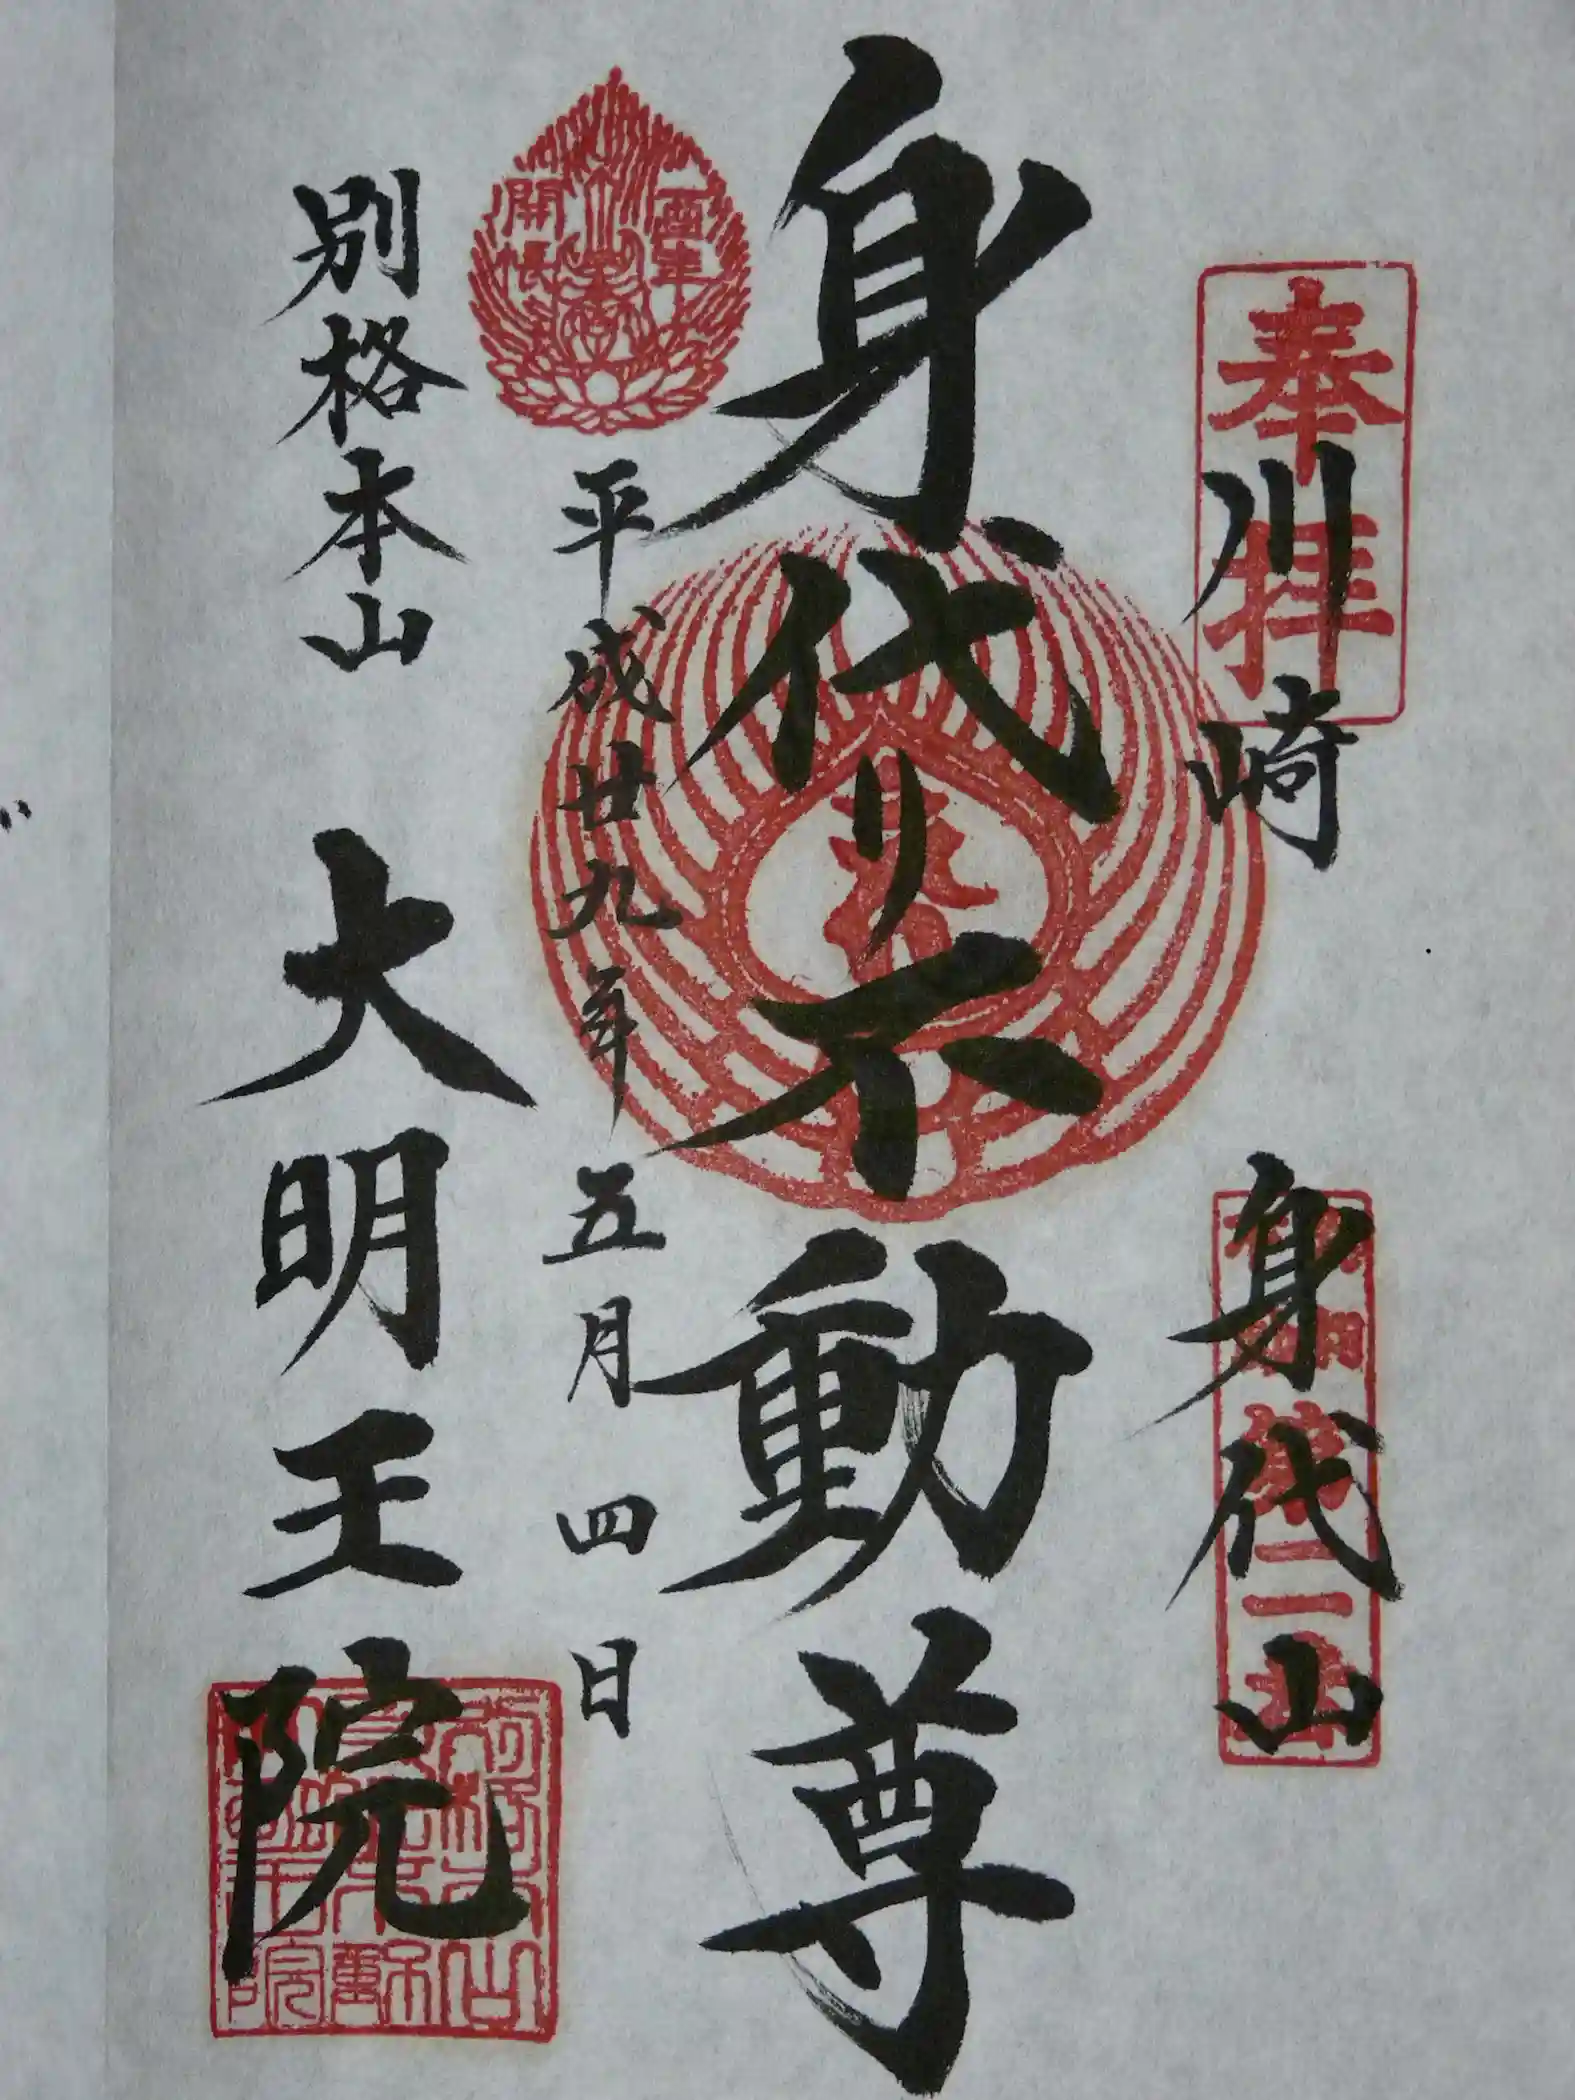 奉拝
川崎 身代山
身代り不動尊
酉年
開帳
平成廿九年五月四日
別格本山 大明王院